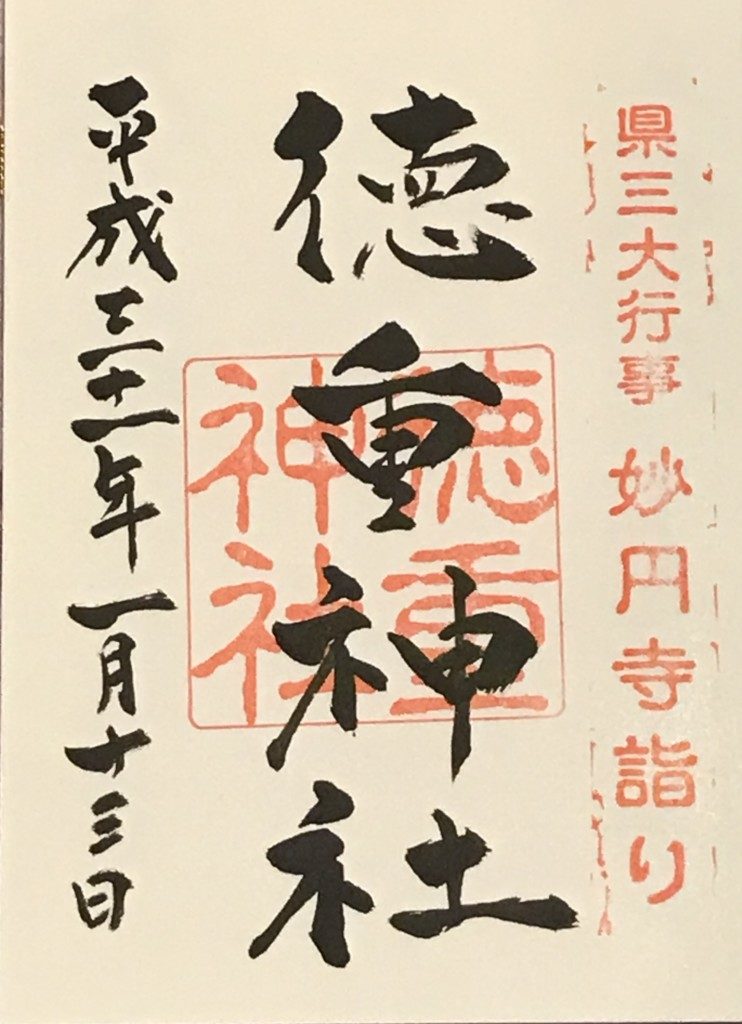 県三大行事 妙円寺詣り
徳重神社
徳重
神社
平成三十一年一月十三日